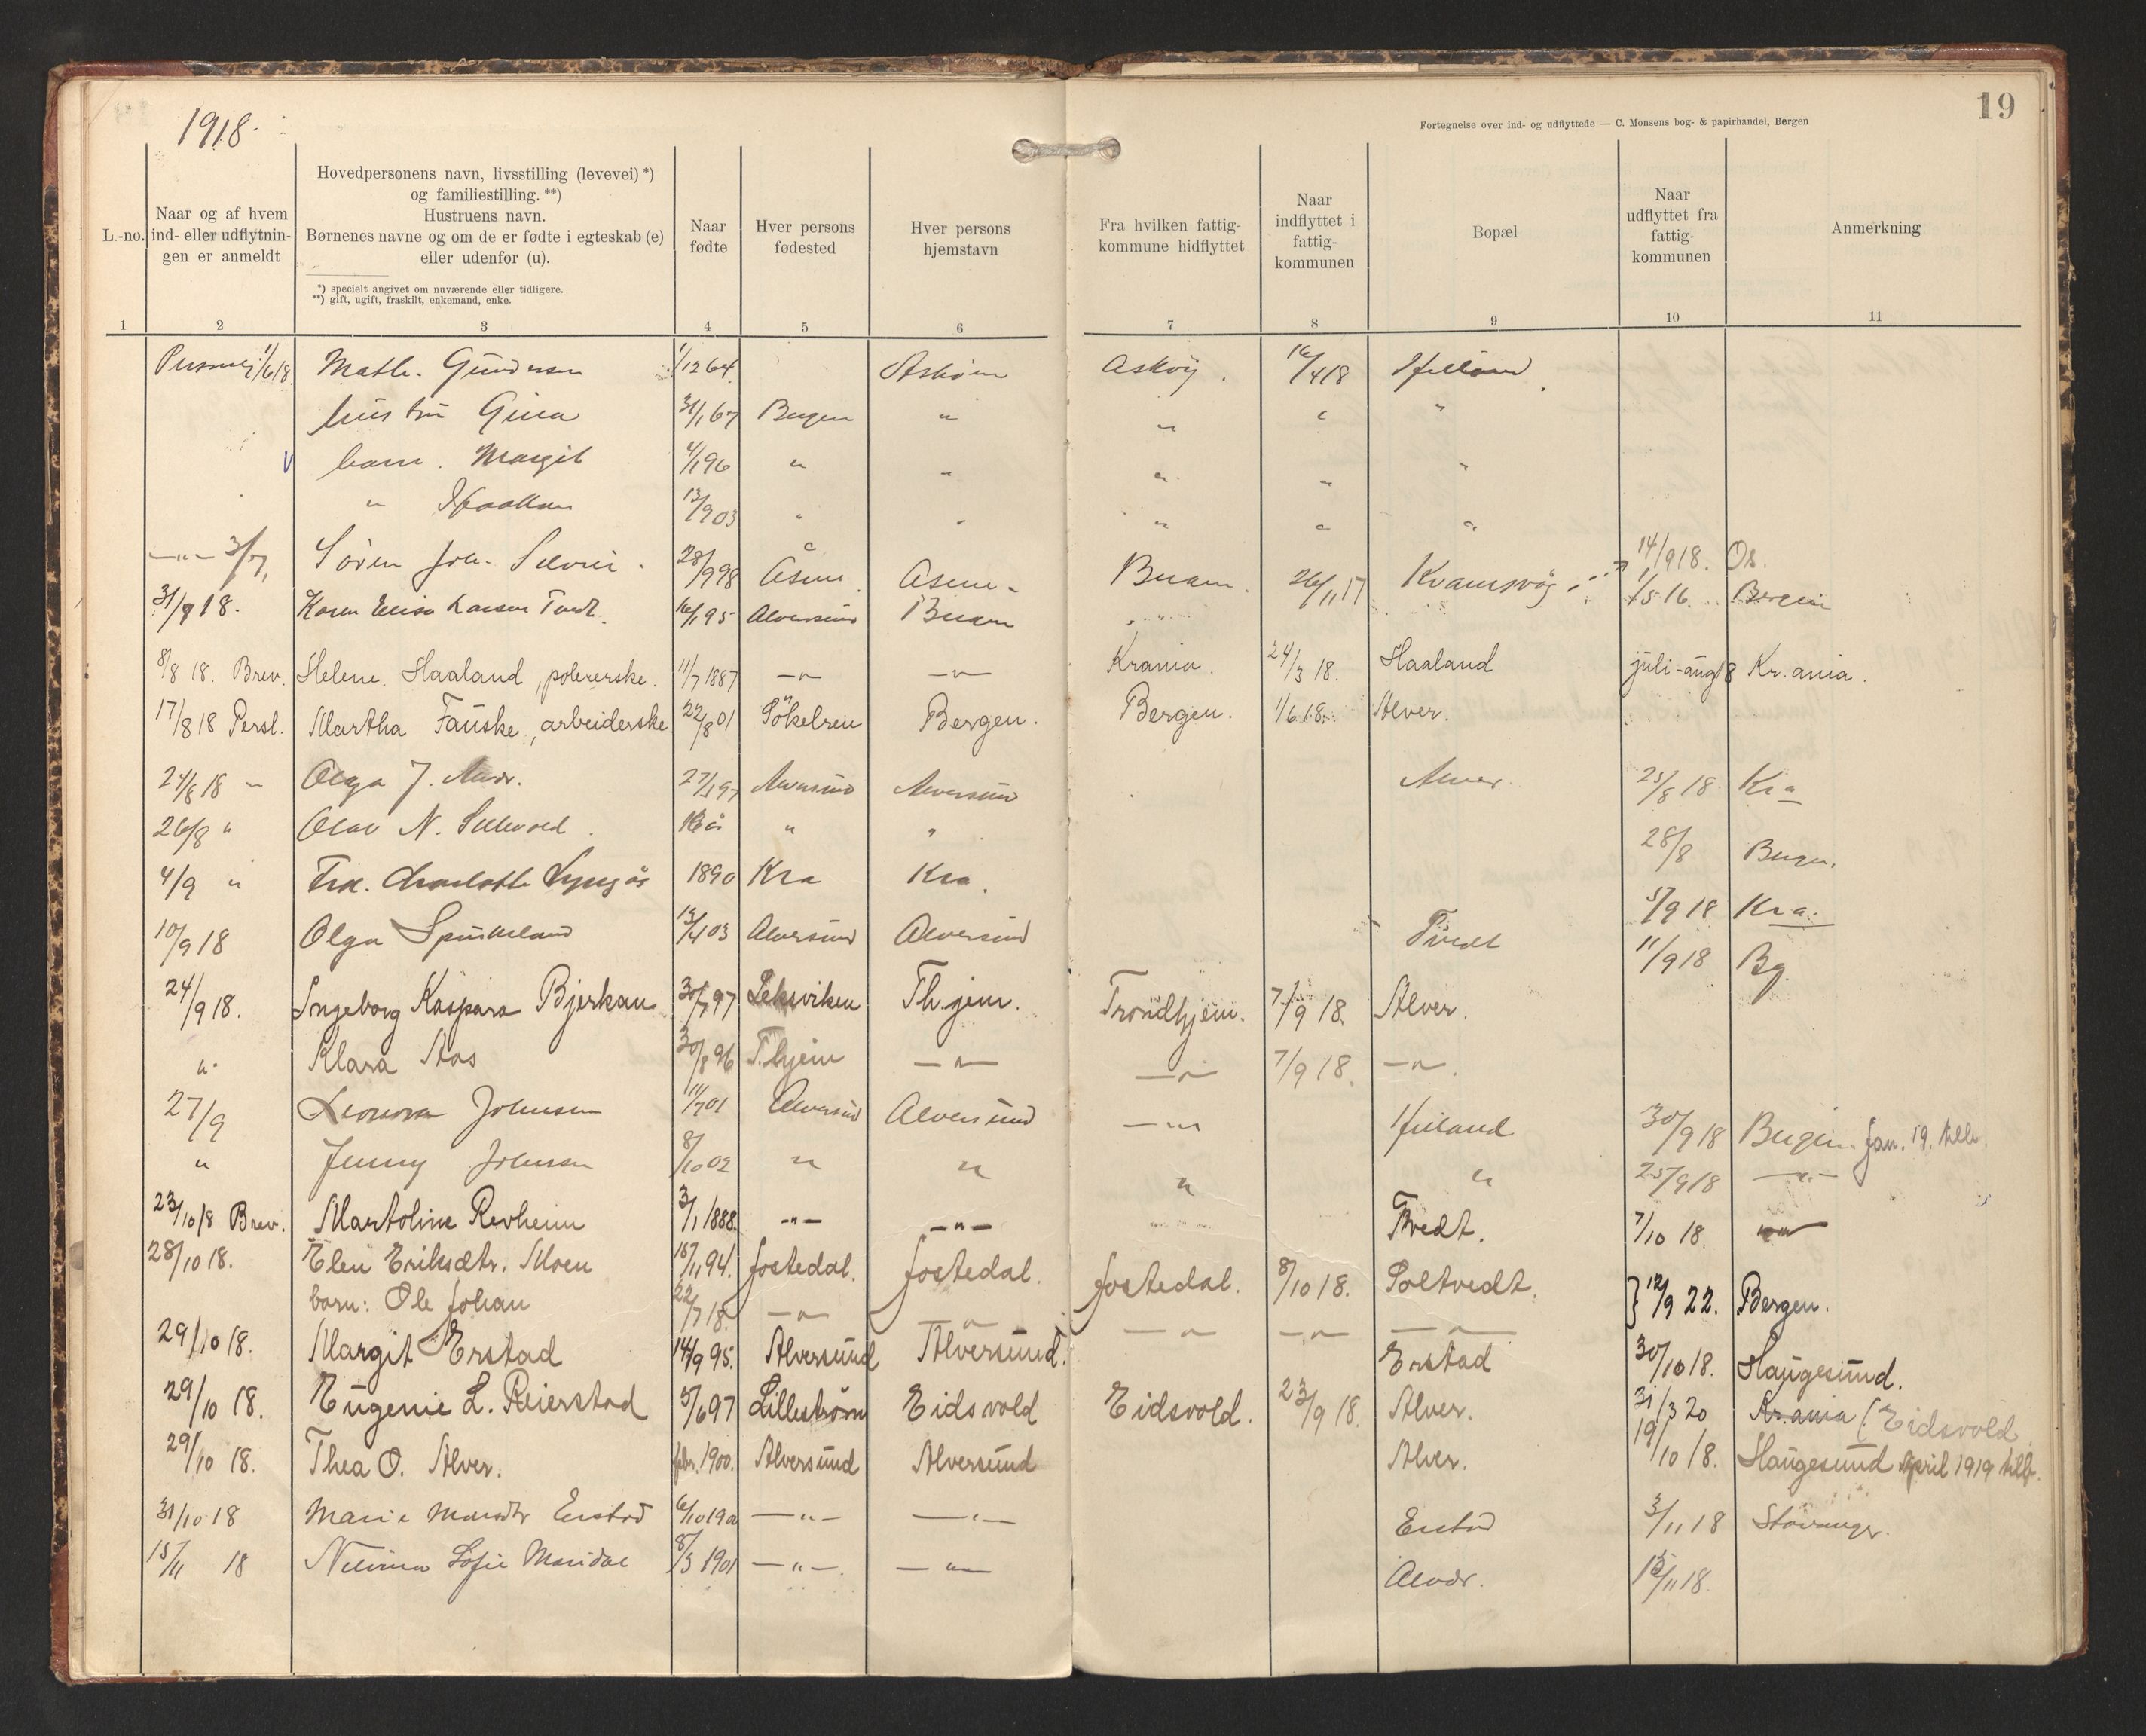 1918.
19
Fortegnelse over ind- og udflyttede — C. Monsens bog- & papirhandel, Bergen
L.-no.
Naar og af hvem ind- eller udflytnin-gen er anmeldt
Hovedpersonens navn, livsstilling (levevei) *) og familiestilling. **) Hustruens navn. Børnenes navne og om de er fødte i egteskab (e) eller udenfor (u).
*) specielt angivet om nuværende eller tidligere.
**) gift, ugift, fraskilt, enkemand, enke.
Naar fødte
Hver persons fødested
Hver persons hjemstavn
Fra hvilken fattig-kommune hidflyttet
Naar indflyttet i fattig-kommunen
Bopæl
Naar udflyttet fra fattig-kommunen
Anmerkning
1 2 3 4 5 6 7 8 9 10 11
1/6 18 Math. Gundersen 1/12 64 Askøy 16/4 18
hustru Gina 31/1 67 Bergen " " " "
barn. Margit 4/1 96 " " " " "
" 13/9 03 " " " " "
—"— Søren Joh. 28/9 98 Åsene Åsene 26/11 17 Kvamsvåg 14/9 18. Os.
31/7 18. Karen Elisa Larsen Tvedt. 16/1 95 Alversund " 1/5 16. Bergen
8/8 18. Brev. Helene Haaland, polererske. 11/7 1887 —"— —"— Krania. 24/3 18. Haaland juli-aug 18 Kr.ania.
17/8 18 Persl. Martha Fauske, arbeiderske 22/8 01 Bergen. Bergen. 1/6 18. Alver.
24/8 18 " Olga J. Alver. 27/1 97 Alversund Alversund Alver 25/8 18 Kra
26/8 " Olav N. 16 år " " 28/8 Bergen.
4/9 " Frk. Charlotte Lyngås 1890 Kra Kra. 5/9 18 Kra.
10/9 18 Olga 13/4 03 Alversund Alversund Tvedt 11/9 18 Bg.
24/9 18. Ingeborg Kaspara Bjerkan 30/7 97 Leksviken Th.jem. Trondhjem. 7/9 18. Alver.
". Klara Aas 30/8 96 T.hjem —"— —"— 7/9 18. —"—.
27/9 Leonora Johnsen 11/7 01 Alversund Alversund —"— 30/9 18 Bergen Jan. 19. tilb.
" Jenny Johnsen 8/10 02 " " " " 25/9 18 —"—
23/10 18 Brev. Martoline Revheim 3/1 1888. —"— —"— Tvedt. 7/10 18. —"—
28/10 18. Elen Eriksdtr. Moen 15/11 94. Jostedal. Jostedal. Jostedal. 8/10 18. Soltvedt. } 12/9 22. Bergen.
barn: Ole Johan 22/7 18. —"— —"— —"— —"— —"—
29/10 18. Margit Erstad 14/9 95. Alversund Alversund. Erstad 30/10 18. Haugesund.
29/10 18. Eugenie L. Reierstad 5/6 97 Lillestrøm Eidsvold Eidsvold. 23/9 18. Alver. 31/3 20 Kr.ania (Eidsvold
29/10 18. Thea O. Alver. febr. 1900. Alversund Alversund Alver. 19/10 18. Haugesund April 1919 tilb.
31/10 18 Marie Monsdtr Erstad 6/10 1900 —"— —"— Erstad 3/11 18 Stavanger.
15/11 18 Sofie 8/3 1901 —"—. —"— Alver. 15/11 18.